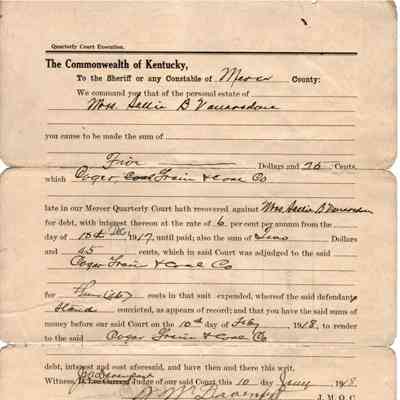 Quarterly Court Execution.
The Commonwealth of Kentucky,
To the Sheriff or any Constable of Mercer County:
We command you that of the personal estate of
Mrs. Sallie B Vanarsdale
you cause to be made the sum of
Five Dollars and 75 Cents,
which Coger, Grain & Coal Co
late in our Mercer Quarterly Court hath recovered against Mrs Sallie B Vanarsdale
for debt, with interest thereon at the rate of 6 per cent per annum from the
day of 15th 1917, until paid; also the sum of Dollars
and 45 cents, which in said Court was adjudged to the said
Coger Grain & Coal Co
for cents in that suit expended, whereof the said defendant
Stands convicted, as appears of record; and that you have the said sums of
money before our said Court on the 10th day of Feby 1918, to render
to the said Coger Grain & Coal Co
debt, interest and cost aforesaid, and have then and there this writ.
Witness, Judge of our said Court this 10 day Jany 1918.
J. M. Q. C.